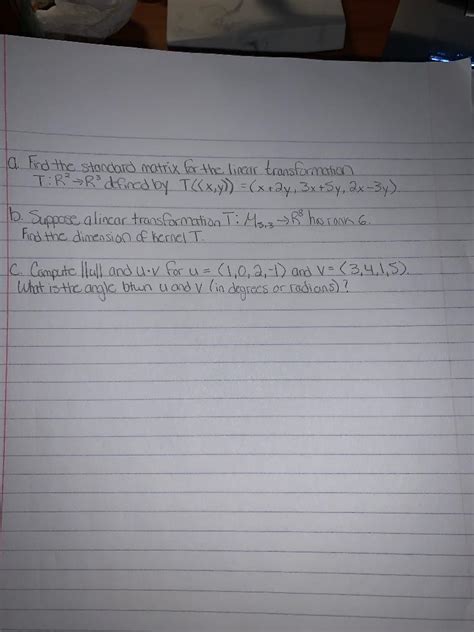 a. Find the standard matrix for the linear transformation
T: R² → R³ defined by T((x,y)) = (x+2y, 3x+5y, 2x-3y)
b. Suppose a linear transformation T: M₃,₃ → R⁸ has rank 6.
Find the dimension of kernel T.
c. Compute ||u|| and u·v for u = (1,0,2,-1) and v = (3,4,1,5).
What is the angle btwn u and v (in degrees or radians)?